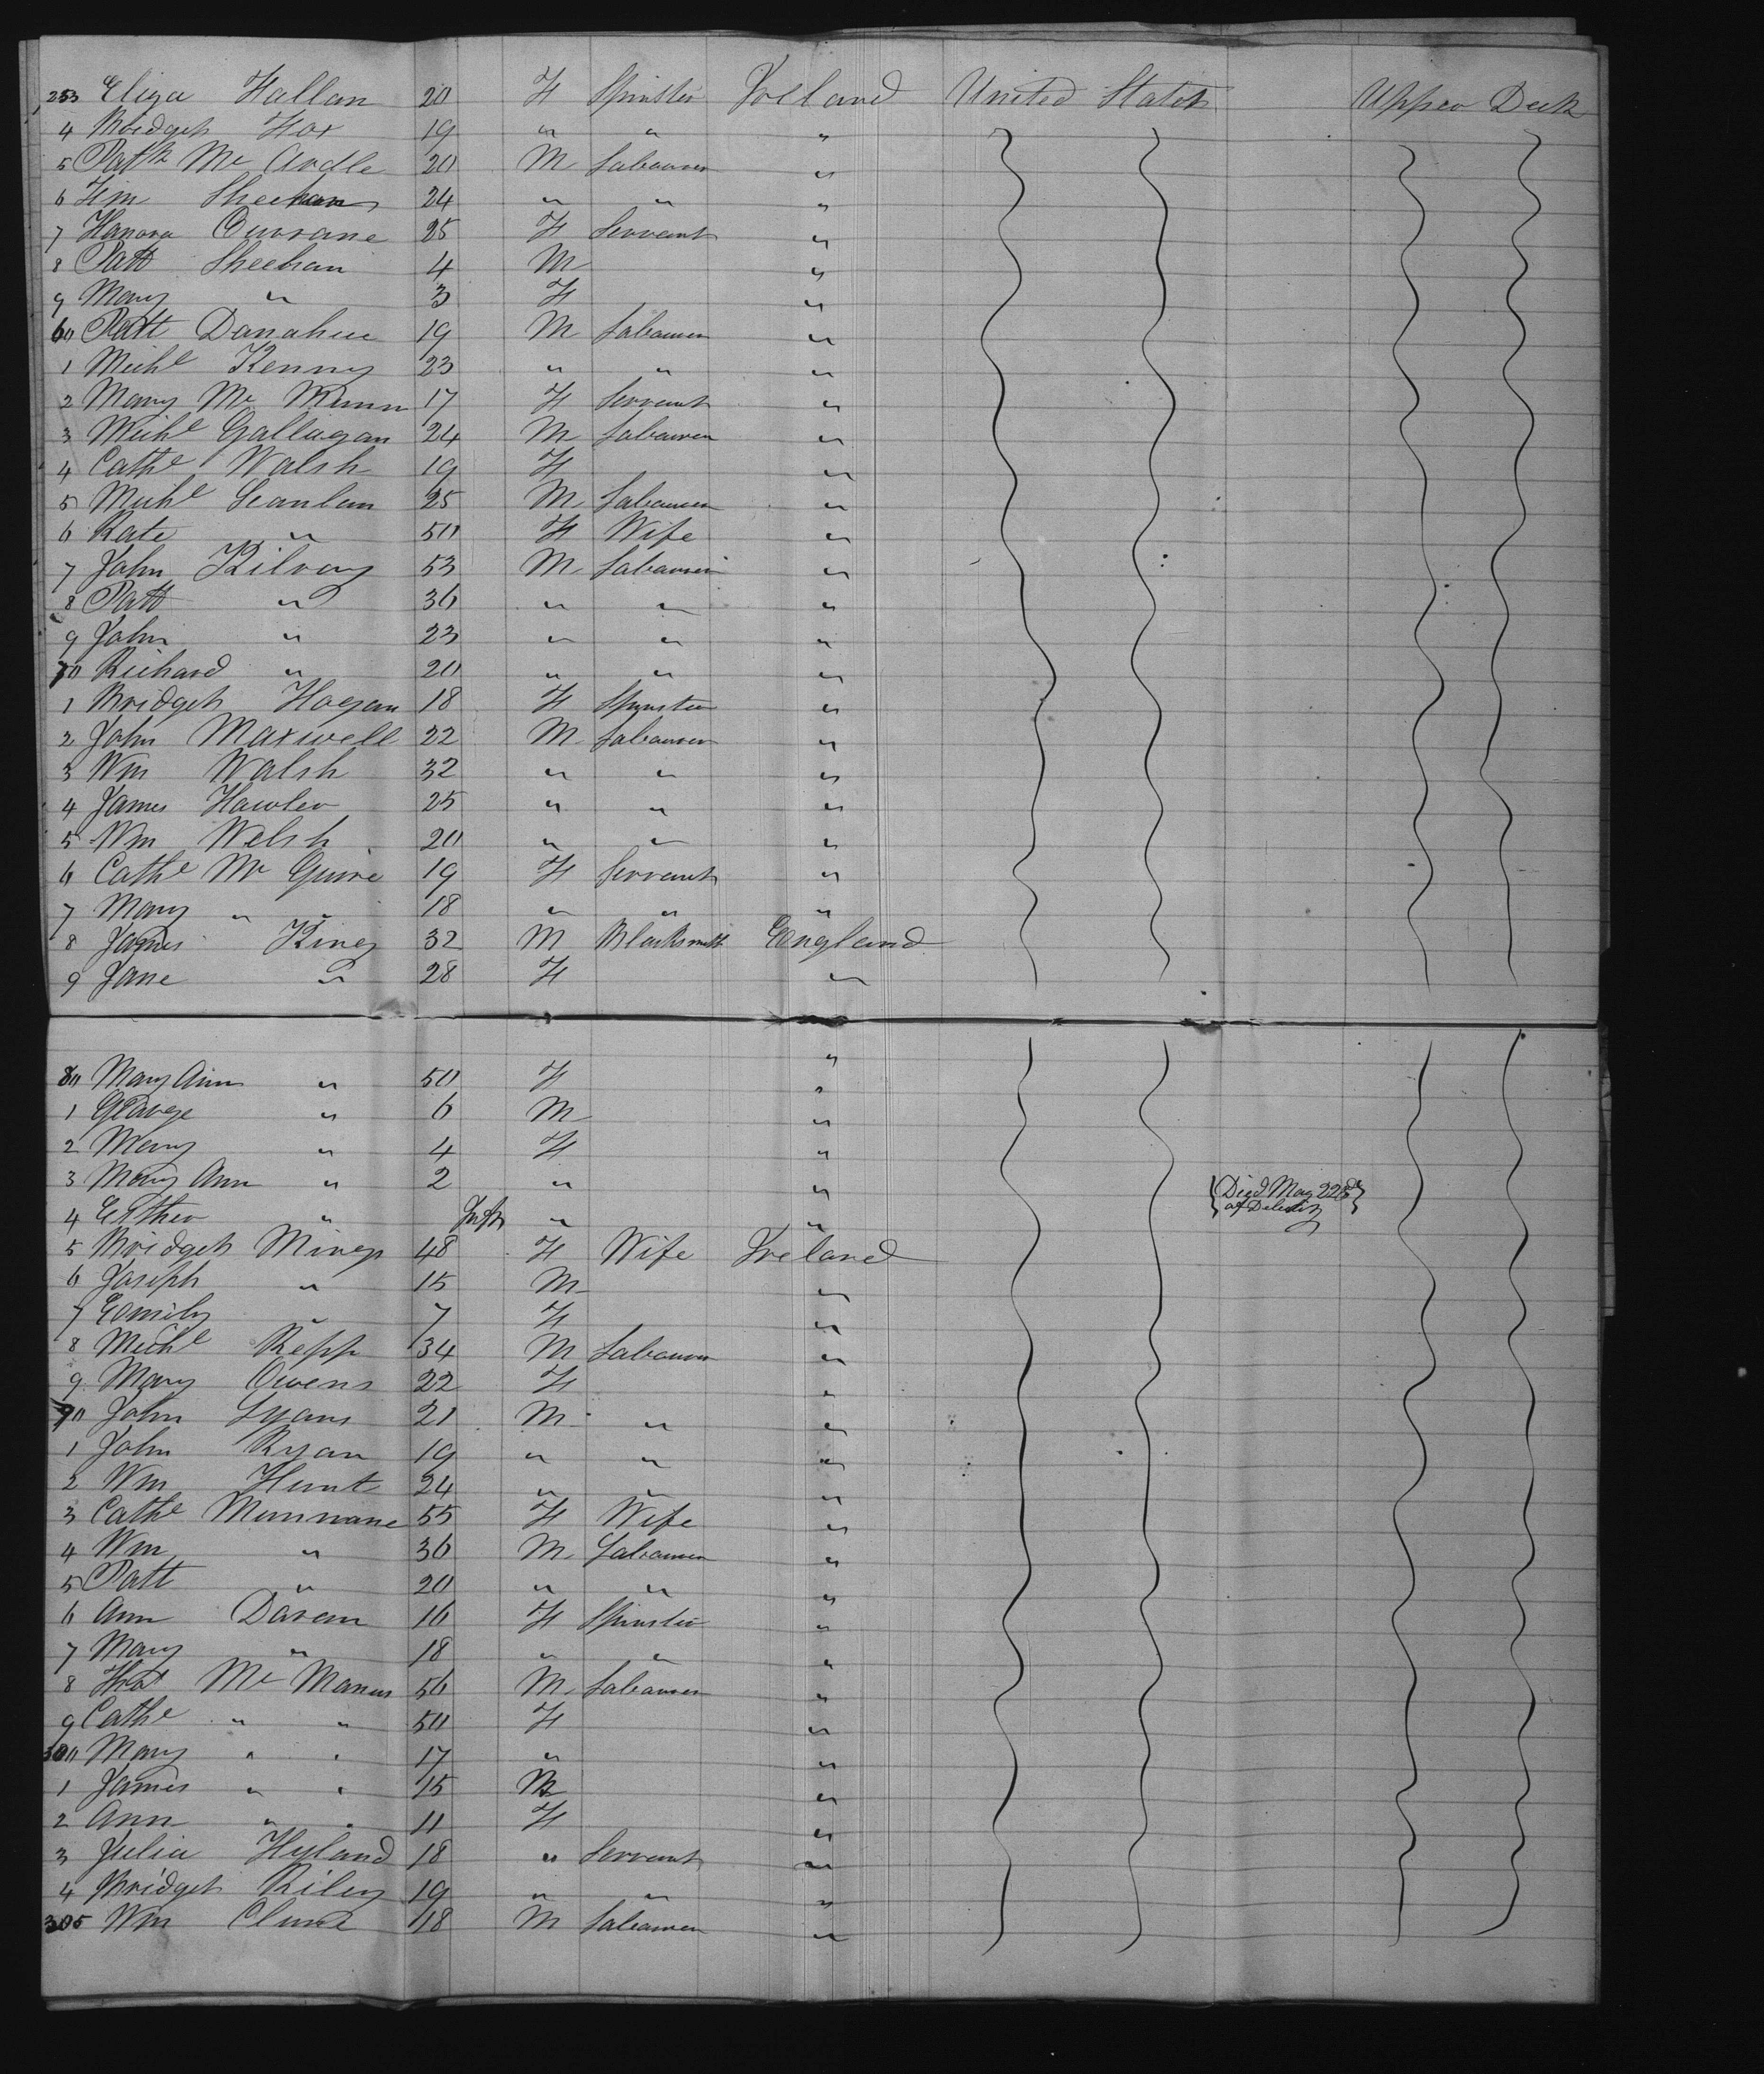 253 Eliza Hallan 20 F Spinster Ireland United States Upper Deck
4 Bridget Fox 19 " " "
5 Patk Mc Ardle 20 M Labourer "
6 Tim Sheehan 24 " " "
7 Hanora Currane 25 F Servant "
8 Patt Sheehan 4 M "
9 Mary " 3 F "
60 Patt Danahue 19 M Labourer "
1 Michl Kenny 23 " " "
2 Mary Mc 17 F Servant "
3 Michl Gallagan 24 M Labourer "
4 Cathe Walsh 19 F "
5 Michl Scanlan 25 M Labourer "
6 Kate " 50 F Wife "
7 John Kilroy 53 M Labourer "
8 Patt " 36 " " "
9 John " 23 " " "
70 Richard " 20 " " "
1 Bridget Hogan 18 F Spinster "
2 John Maxwell 22 M Labourer "
3 Wm Walsh 32 " " "
4 James Hawler 25 " " "
5 Wm Welsh 20 " " "
6 Cathe Mc Guire 19 F Servant "
7 Mary " " 18 " " "
8 James King 32 M Blacksmith England
9 Jane " 28 F "
80 Mary Ann " 50 F "
1 George " 6 M "
2 Mary " 4 F "
3 Mary Ann " 2 " "
4 Esther " Inft " " Died May 22d of Debility
5 Bridget 48 F Wife Ireland
6 Joseph " 15 M "
7 Emily " 7 F "
8 Michl Repp 34 M Labourer "
9 Mary Owens 22 F "
90 John Lyans 21 M " "
1 John Ryan 19 " " "
2 Wm Hunt 24 " " "
3 Cathe Munnane 55 F Wife "
4 Wm " 36 M Labourer "
5 Patt " 20 " " "
6 Ann Daran 16 F Spinster "
7 Mary " 18 " " "
8 Mc Manus 56 M Labourer "
9 Cathe " " 50 F "
300 Mary " " 17 " "
1 James " " 15 M "
2 Ann " " 11 F "
3 Julia Hyland 18 " Servant "
4 Bridget Riley 19 " " "
305 Wm 18 M Labourer "